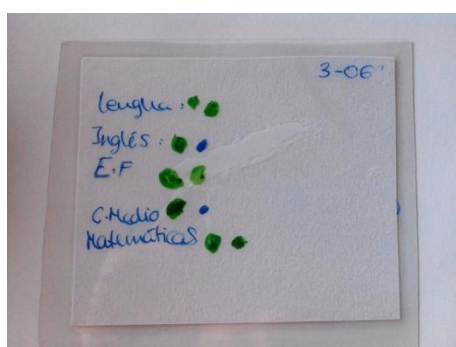 3-06
Lengua:
Inglés:
E.F
C.Medio
Matemáticas